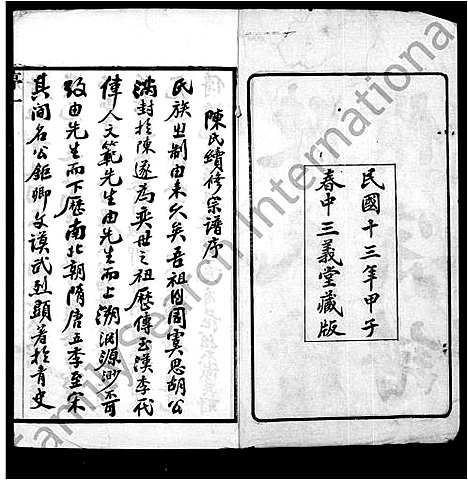 民國十三年甲子
春中三義堂藏版
陳氏續修宗譜序
民族之制由來久矣吾祖自閼虞思胡公
滿封於陳遂為奕世之祖歷傳至漢季代
偉人文範先生由先生而上溯淵源渺不可
攷由先生而下歷南北朝隋唐五季至宋
其間名公鉅卿文謨武烈顯著於青史
FamilySearch International